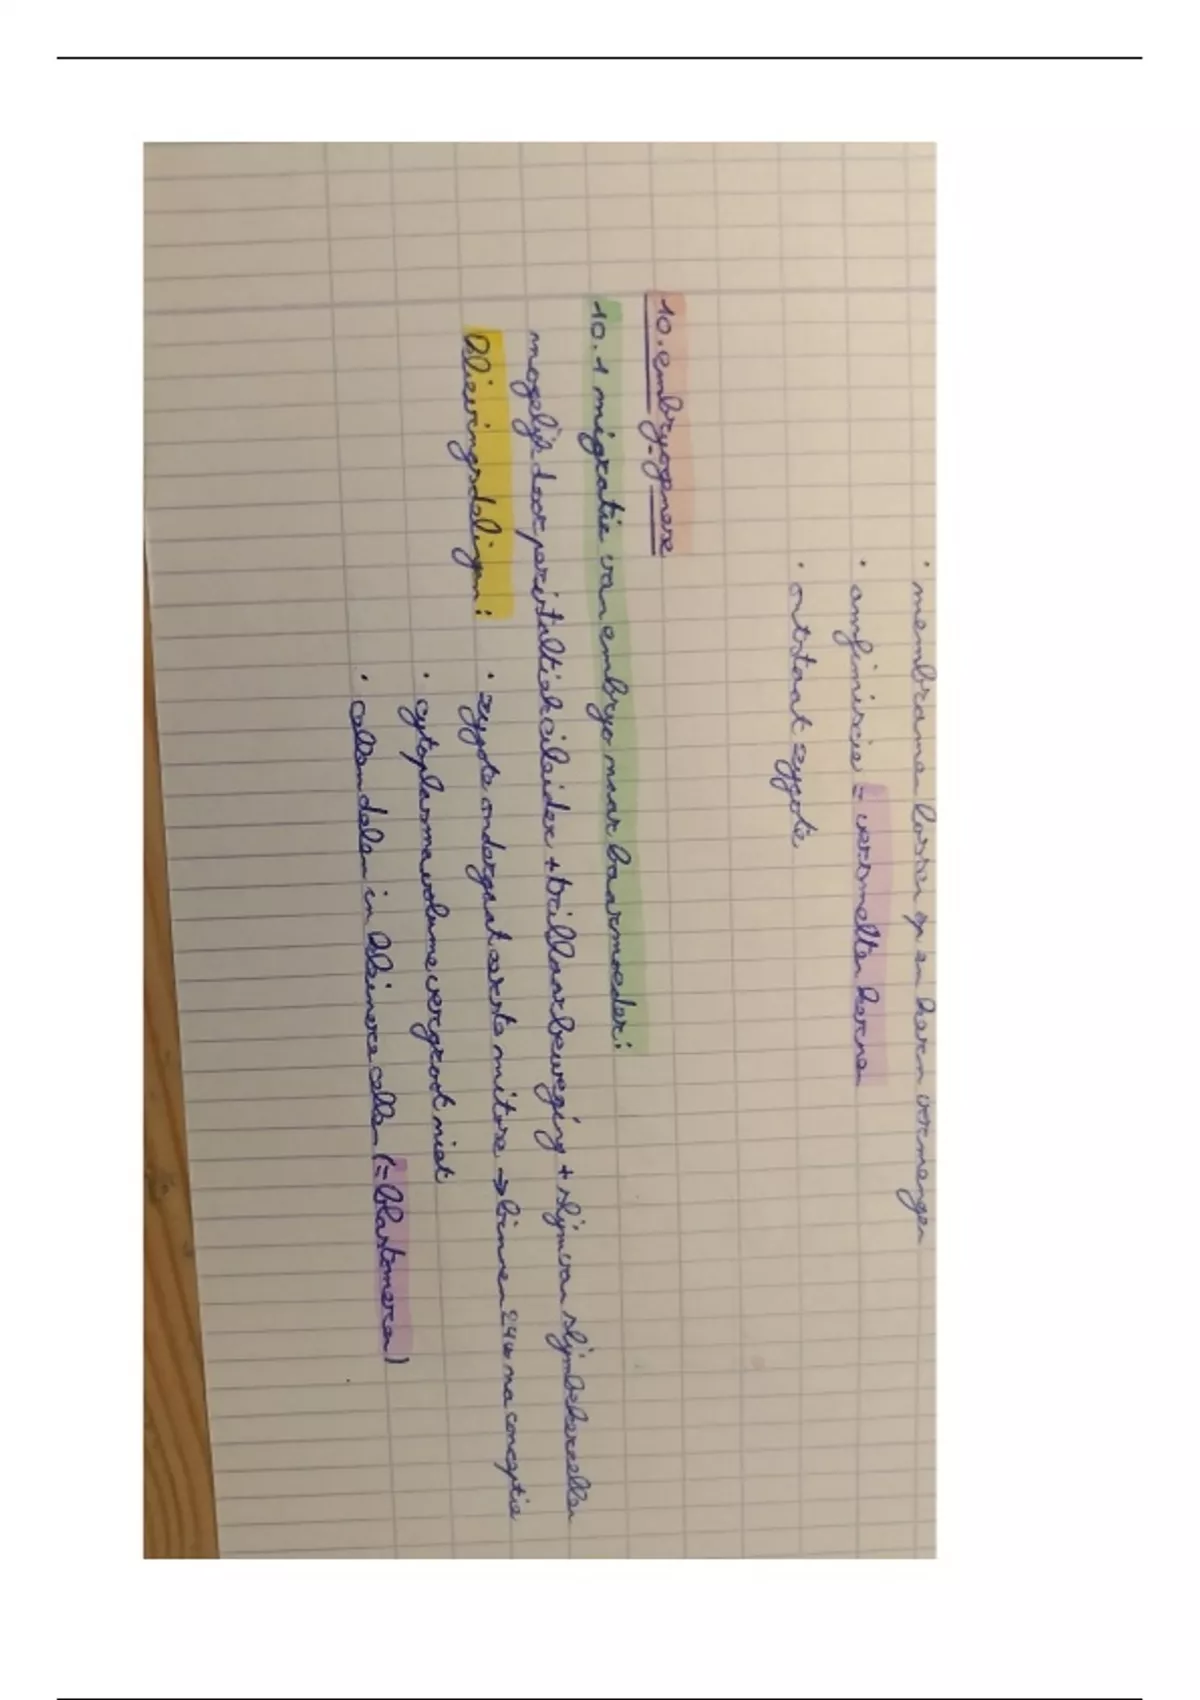 · membranen lossen op en kern vermengen
· amfimixie = versmelten kernen
· ontstaat zygote
10. embryogenese
10.1 migratie van embryo naar baarmoeder:
mogelijk door peristaltiek eileider + trilhaarbeweging + slijm van slijmbekercellen
Klievingsdelingen:
· zygote ondergaat eerste mitose → binnen 24u na conceptie
· cytoplasmavolume vergroot niet
· cellen delen in kleinere cellen (= blastomeren)